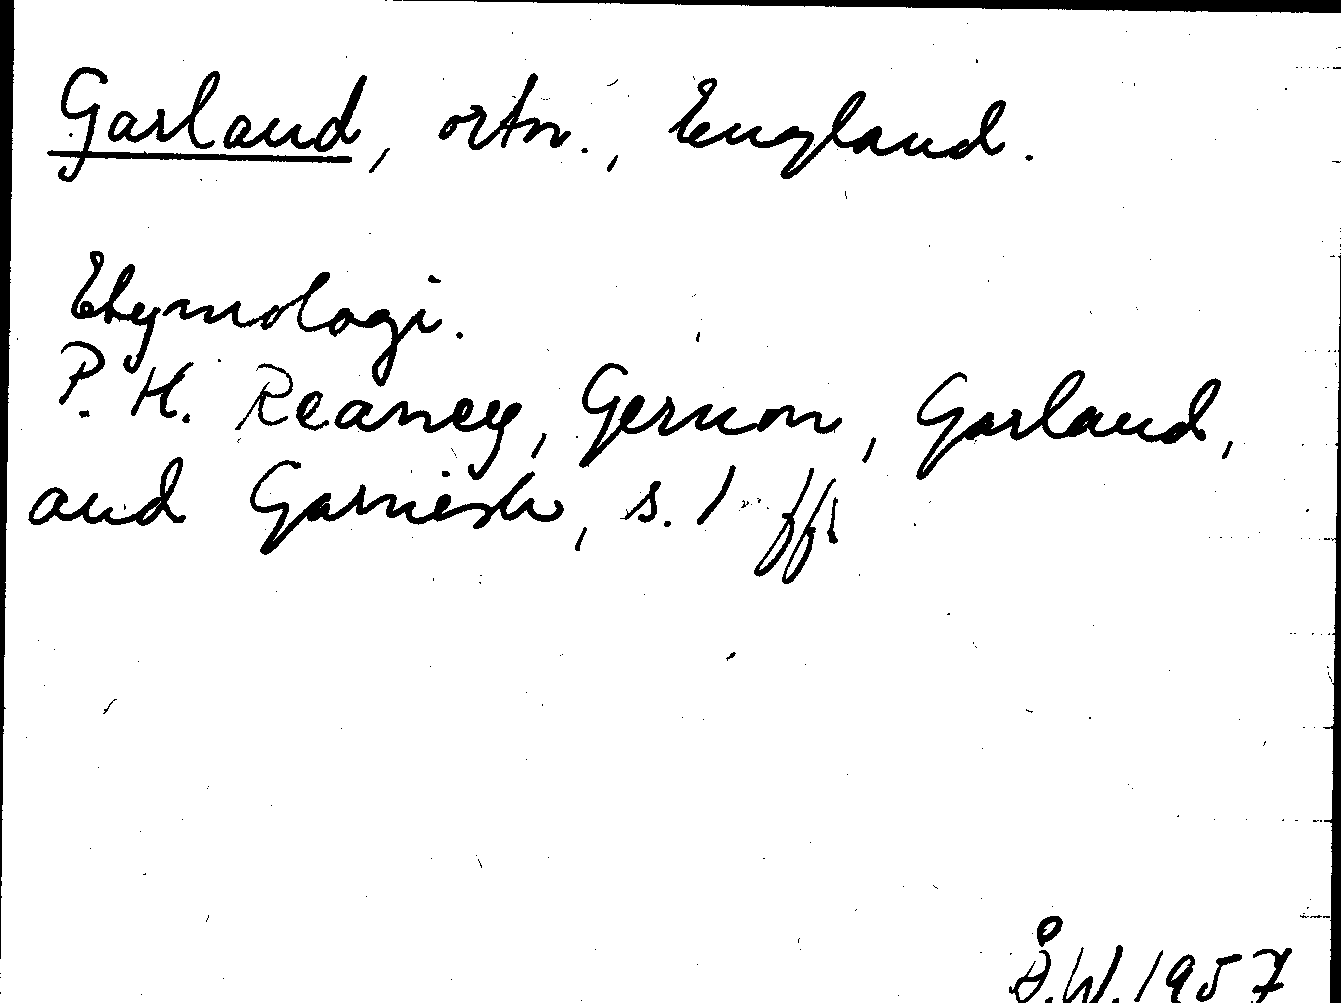 Garland, ortn., England.
Etymologi.
P. H. Reaney, Gernon, Garland,
and Garnish, s. 1 ff.
Å.W. 1957